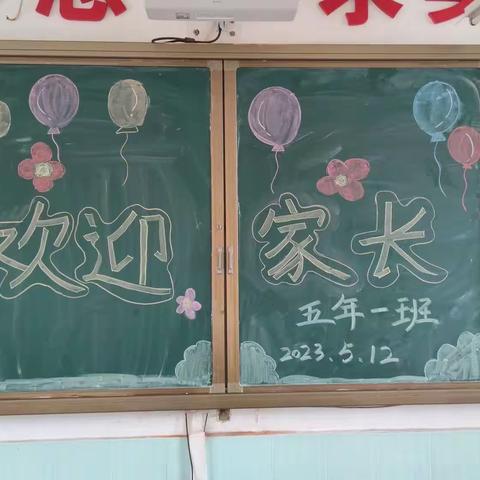 欢迎家长
五年一班
2023.5.12